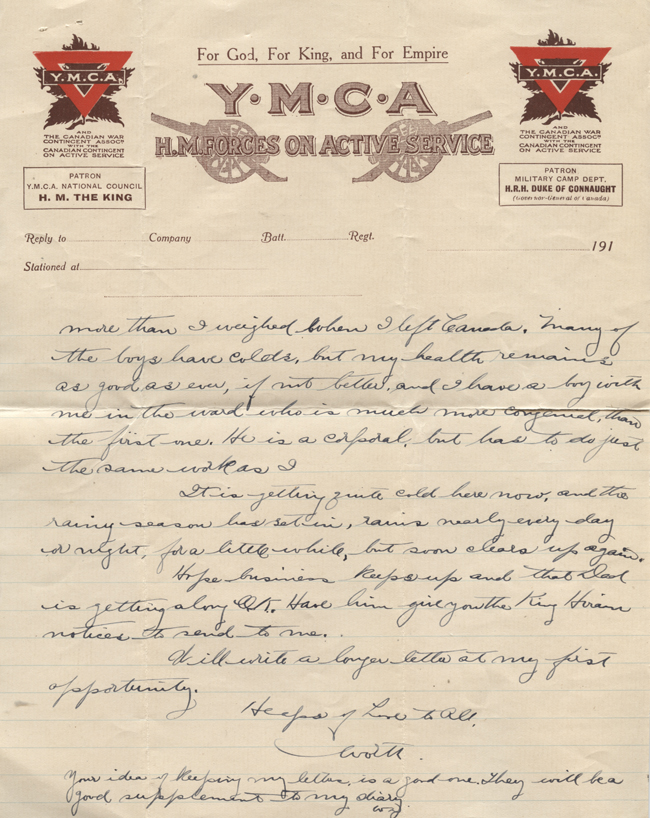 For God, For King, and For Empire
Y·M·C·A
H.M. FORCES ON ACTIVE SERVICE
Y.M.C.A.
AND
THE CANADIAN WAR
CONTINGENT ASSOCN
WITH THE
CANADIAN CONTINGENT
ON ACTIVE SERVICE
PATRON
Y.M.C.A. NATIONAL COUNCIL
H. M. THE KING
Y.M.C.A.
AND
THE CANADIAN WAR
CONTINGENT ASSOCN
WITH THE
CANADIAN CONTINGENT
ON ACTIVE SERVICE
PATRON
MILITARY CAMP DEPT.
H.R.H. DUKE OF CONNAUGHT
(Governor-General of Canada)
Reply to Company Batt. Regt. 191
Stationed at
more than I weighed when I left Canada. Many of
the boys have colds, but my health remains
as good as ever, if not better, and I have a boy with
me in the ward who is much more congenial, than
the first one. He is a corporal, but has to do just
the same work as I
It is getting quite cold here now, and the
rainy season has set in, rains nearly every day
or night, for a little while, but soon clears up again.
Hope business keeps up and that Dad
is getting along O.K. Have him give you the King Hiram
notices to send to me.
Will write a longer letter at my first
opportunity.
Heaps of Love to All,
Worth.
Your idea of keeping my letters, is a good one. They will be a
good supplement to my diary.